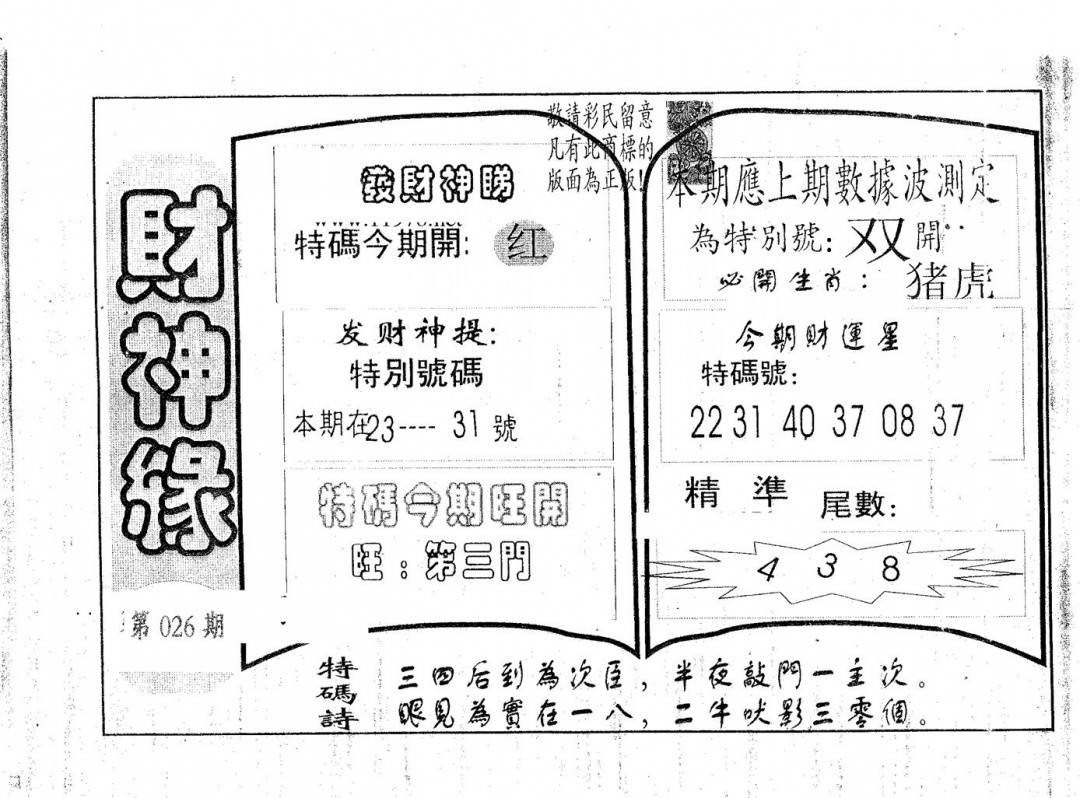 財神緣
第 026 期
敬請彩民留意
凡有此商標的
版面為正版!
發財神睇
特碼今期開: 红
发财神提:
特別號碼
本期在23---- 31 號
特碼今期旺開
旺: 第三門
本期應上期數據波測定
為特別號: 双 開
必開生肖: 猪虎
今期財運星
特碼號:
22 31 40 37 08 37
精 準 尾數:
4 3 8
特碼詩
三四后到為次臣，半夜敲門一主次。
眼見為實在一八，二牛吠影三零個。